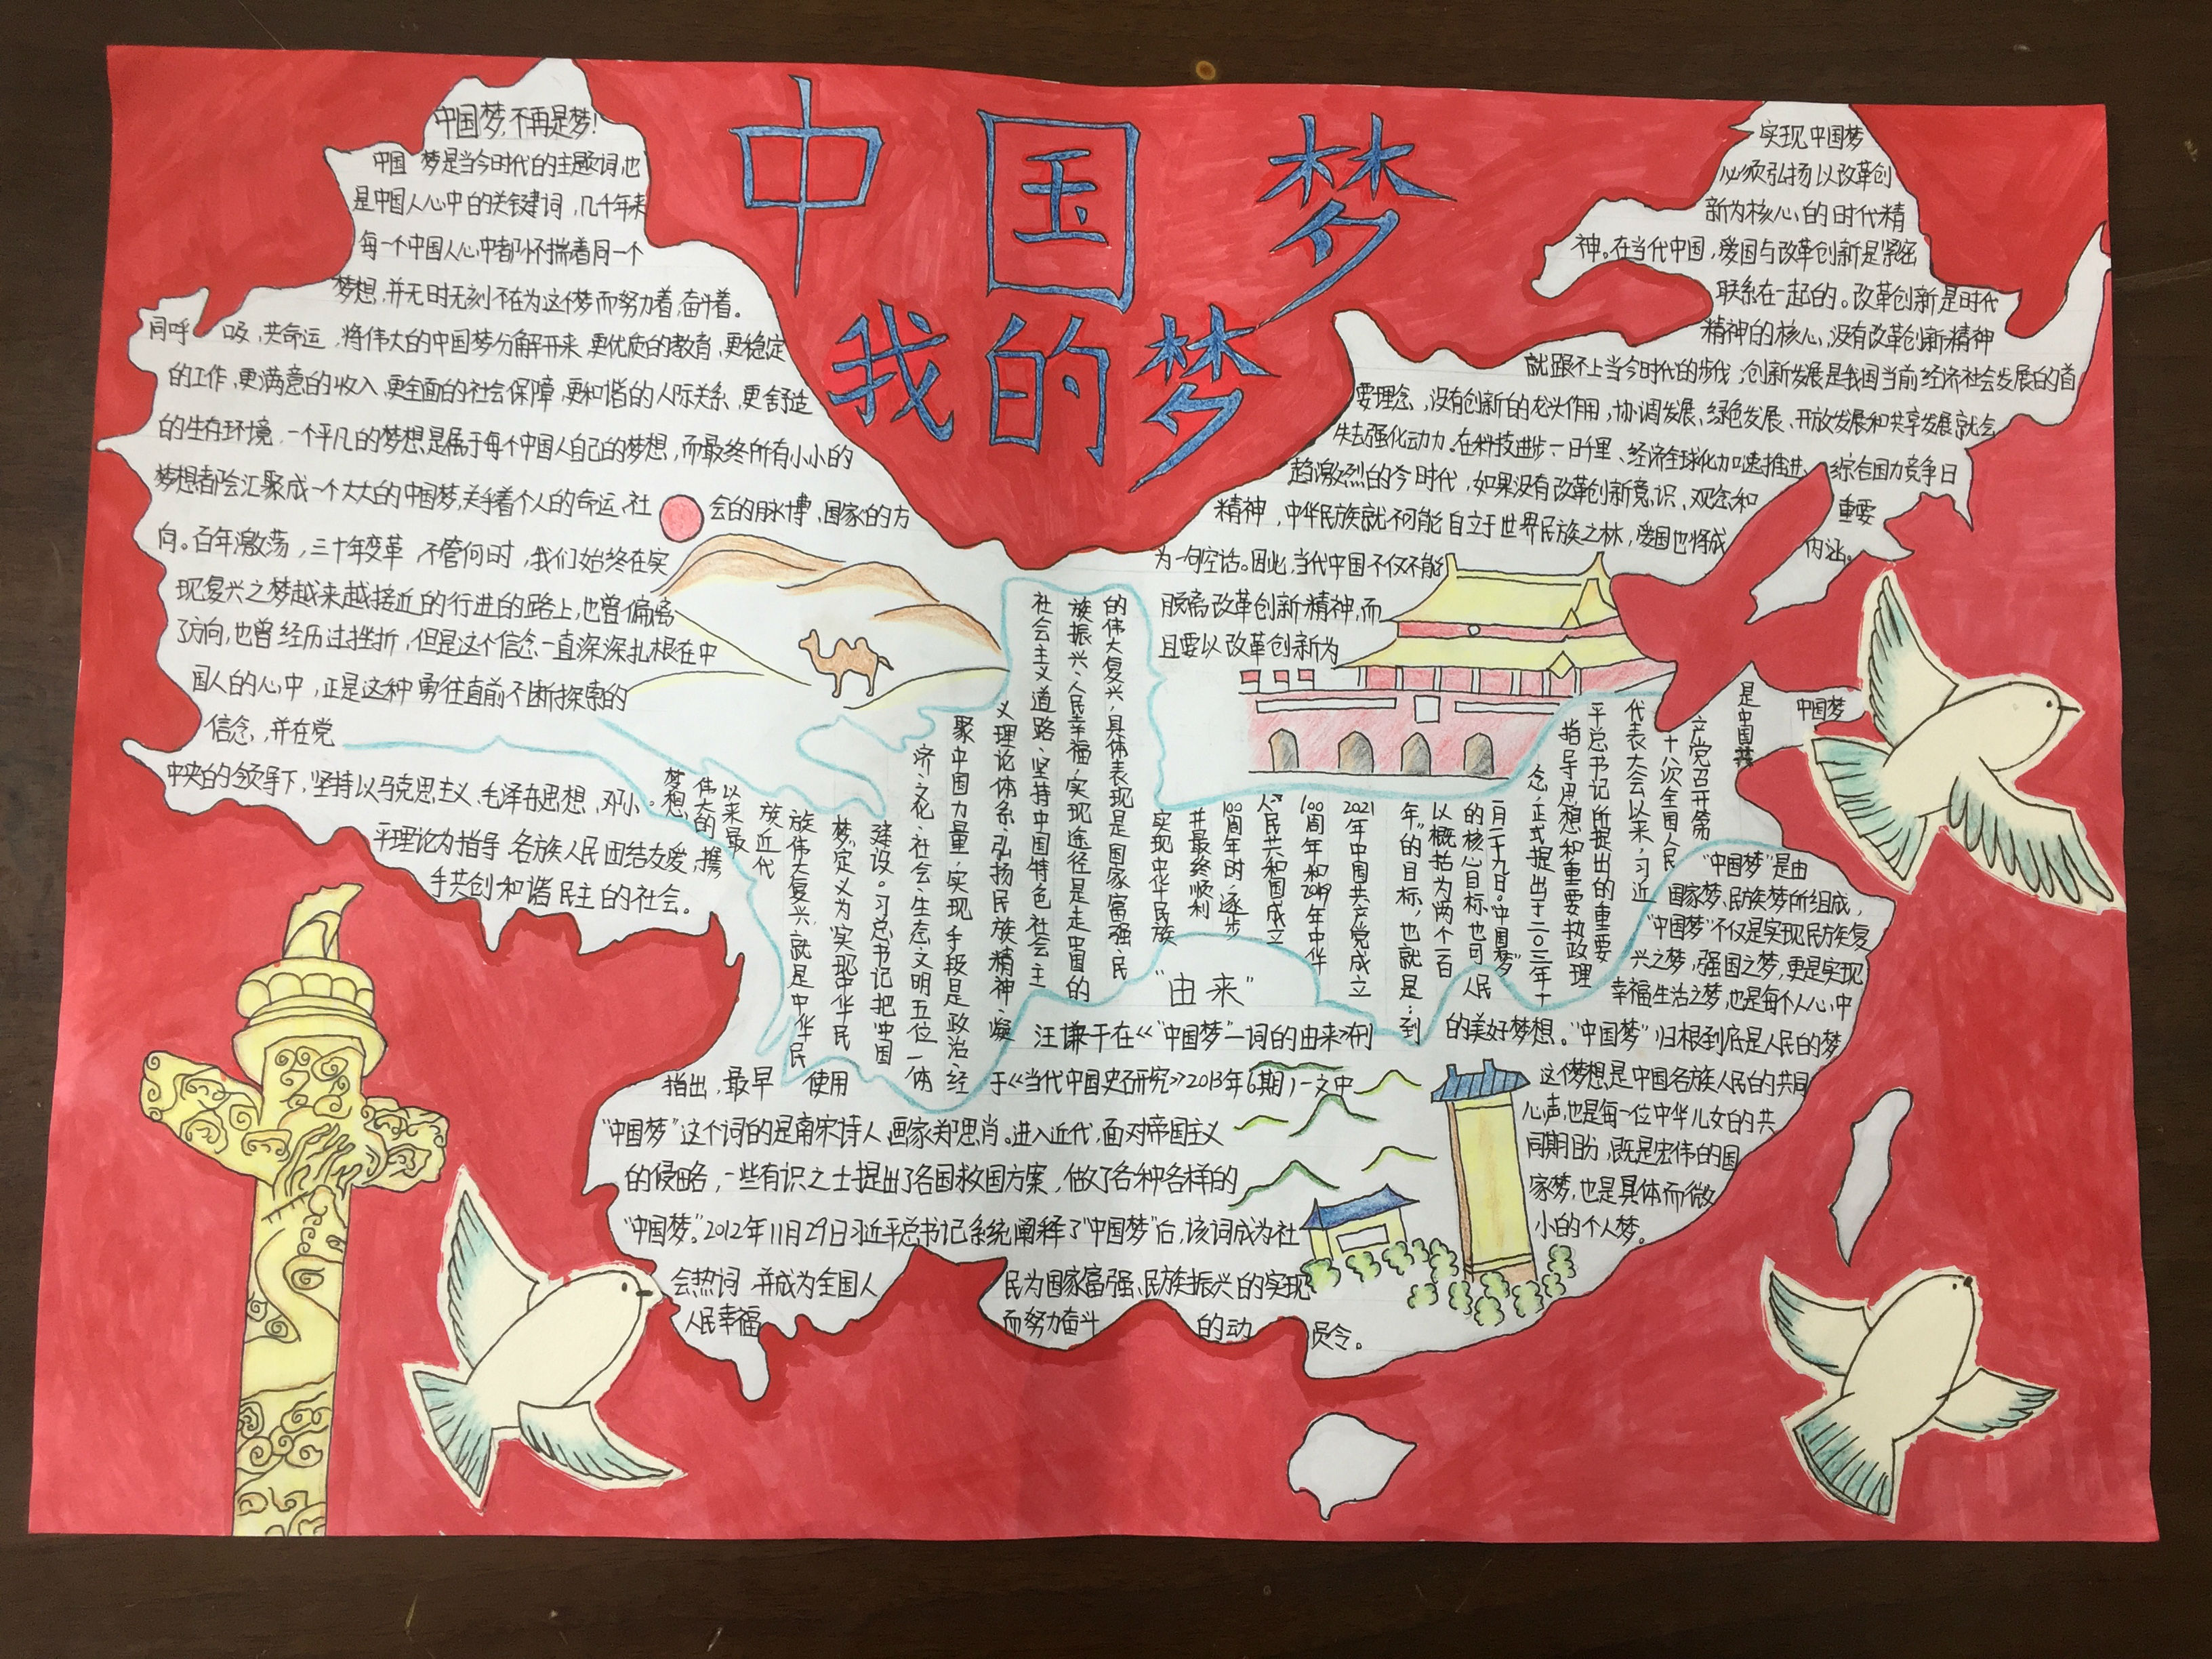 中国梦
我的梦
中国梦,不再是梦!
中国 梦是当今时代的主题词,也
是中国人心中的关键词,几千年来
每一个中国人心中都怀揣着同一个
梦想,并无时无刻不在为这个梦而努力着,奋斗着。
同呼 吸,共命运,将伟大的中国梦分解开来,更优质的教育、更稳定
的工作、更满意的收入、更全面的社会保障、更和谐的人际关系、更舒适
的生存环境,一个平凡的梦想是属于每个中国人自己的梦想,而最终所有小小的
梦想都会汇聚成一个大大的中国梦,关乎着个人的命运、社 会的脉博、国家的方
向。百年激荡,三十年变革,不管何时,我们始终在实
现复兴之梦越来越接近的行进的路上,也曾偏离
了方向,也曾经历过挫折,但是这个信念一直深深扎根在中
国人的心中,正是这种勇往直前不断探索的
信念,并在党
中央的领导下,坚持以马克思主义、毛泽东思想、邓小
平理论为指导,各族人民团结友爱,携
手共创和谐民主的社会。
实现中国梦
必须弘扬以改革创
新为核心的时代精
神。在当代中国,爱国与改革创新是紧密
联系在一起的。改革创新是时代
精神的核心,没有改革创新精神
就跟不上当今时代的步伐,创新发展是我国当前经济社会发展的首
要理念,没有创新的龙头作用,协调发展、绿色发展、开放发展和共享发展就会
失去强化动力。在科技进步一日千里、经济全球化加速推进、综合国力竞争日
趋激烈的今时代,如果没有改革创新意识、观念和
精神,中华民族就不可能自立于世界民族之林,爱国也将成
为一句空话。因此,当代中国不仅不能
脱离改革创新精神,而
且要以改革创新为
重要
内涵。
中国梦
是中国共
产党召开第
十八次全国人民
代表大会以来,习近
平总书记所提出的重要
指导思想和重要执政理
念,正式提出于二〇一二年十
一月二十九日。“中国梦”
的核心目标也可
以概括为“两个一百
年”的目标,也就是:到
2021年中国共产党成立
100周年和2049年中华
人民共和国成立
100周年时,逐步
并最终顺利
实现中华民族
的伟大复兴,具体表现是国家富强、民
族振兴、人民幸福,实现途径是走中国的
社会主义道路、坚持中国特色社会主
义理论体系、弘扬民族精神、凝
聚中国力量,实现手段是政治、经
济、文化、社会、生态文明五位一体
建设。习总书记把“中国
梦”定义为“实现中华民
族伟大复兴,就是中华民
族近代
以来最
伟大的
梦想”。
“由来”
汪谦干在《“中国梦”一词的由来》(刊
于《当代中国史研究》2013年6期)一文中
指出,最早 使用
“中国梦”这个词的是南宋诗人、画家郑思肖。进入近代,面对帝国主义
的侵略,一些有识之士提出了各国救国方案,做了各种各样的
“中国梦”。2012年11月29日习近平总书记系统阐释了“中国梦”后,该词成为社
会热词,并成为全国人 民为国家富强、民族振兴的实现
人民幸福 而努力奋斗 的动 员令。
“中国梦”是由
国家梦、民族梦所组成,
“中国梦”不仅是实现民族复
兴之梦,强国之梦,更是实现
幸福生活之梦,也是每个人心中
的美好梦想。“中国梦”归根到底是人民的梦
这个梦想,是中国各族人民的共同
心声,也是每一位中华儿女的共
同期盼,既是宏伟的国
家梦,也是具体而微
小的个人梦。